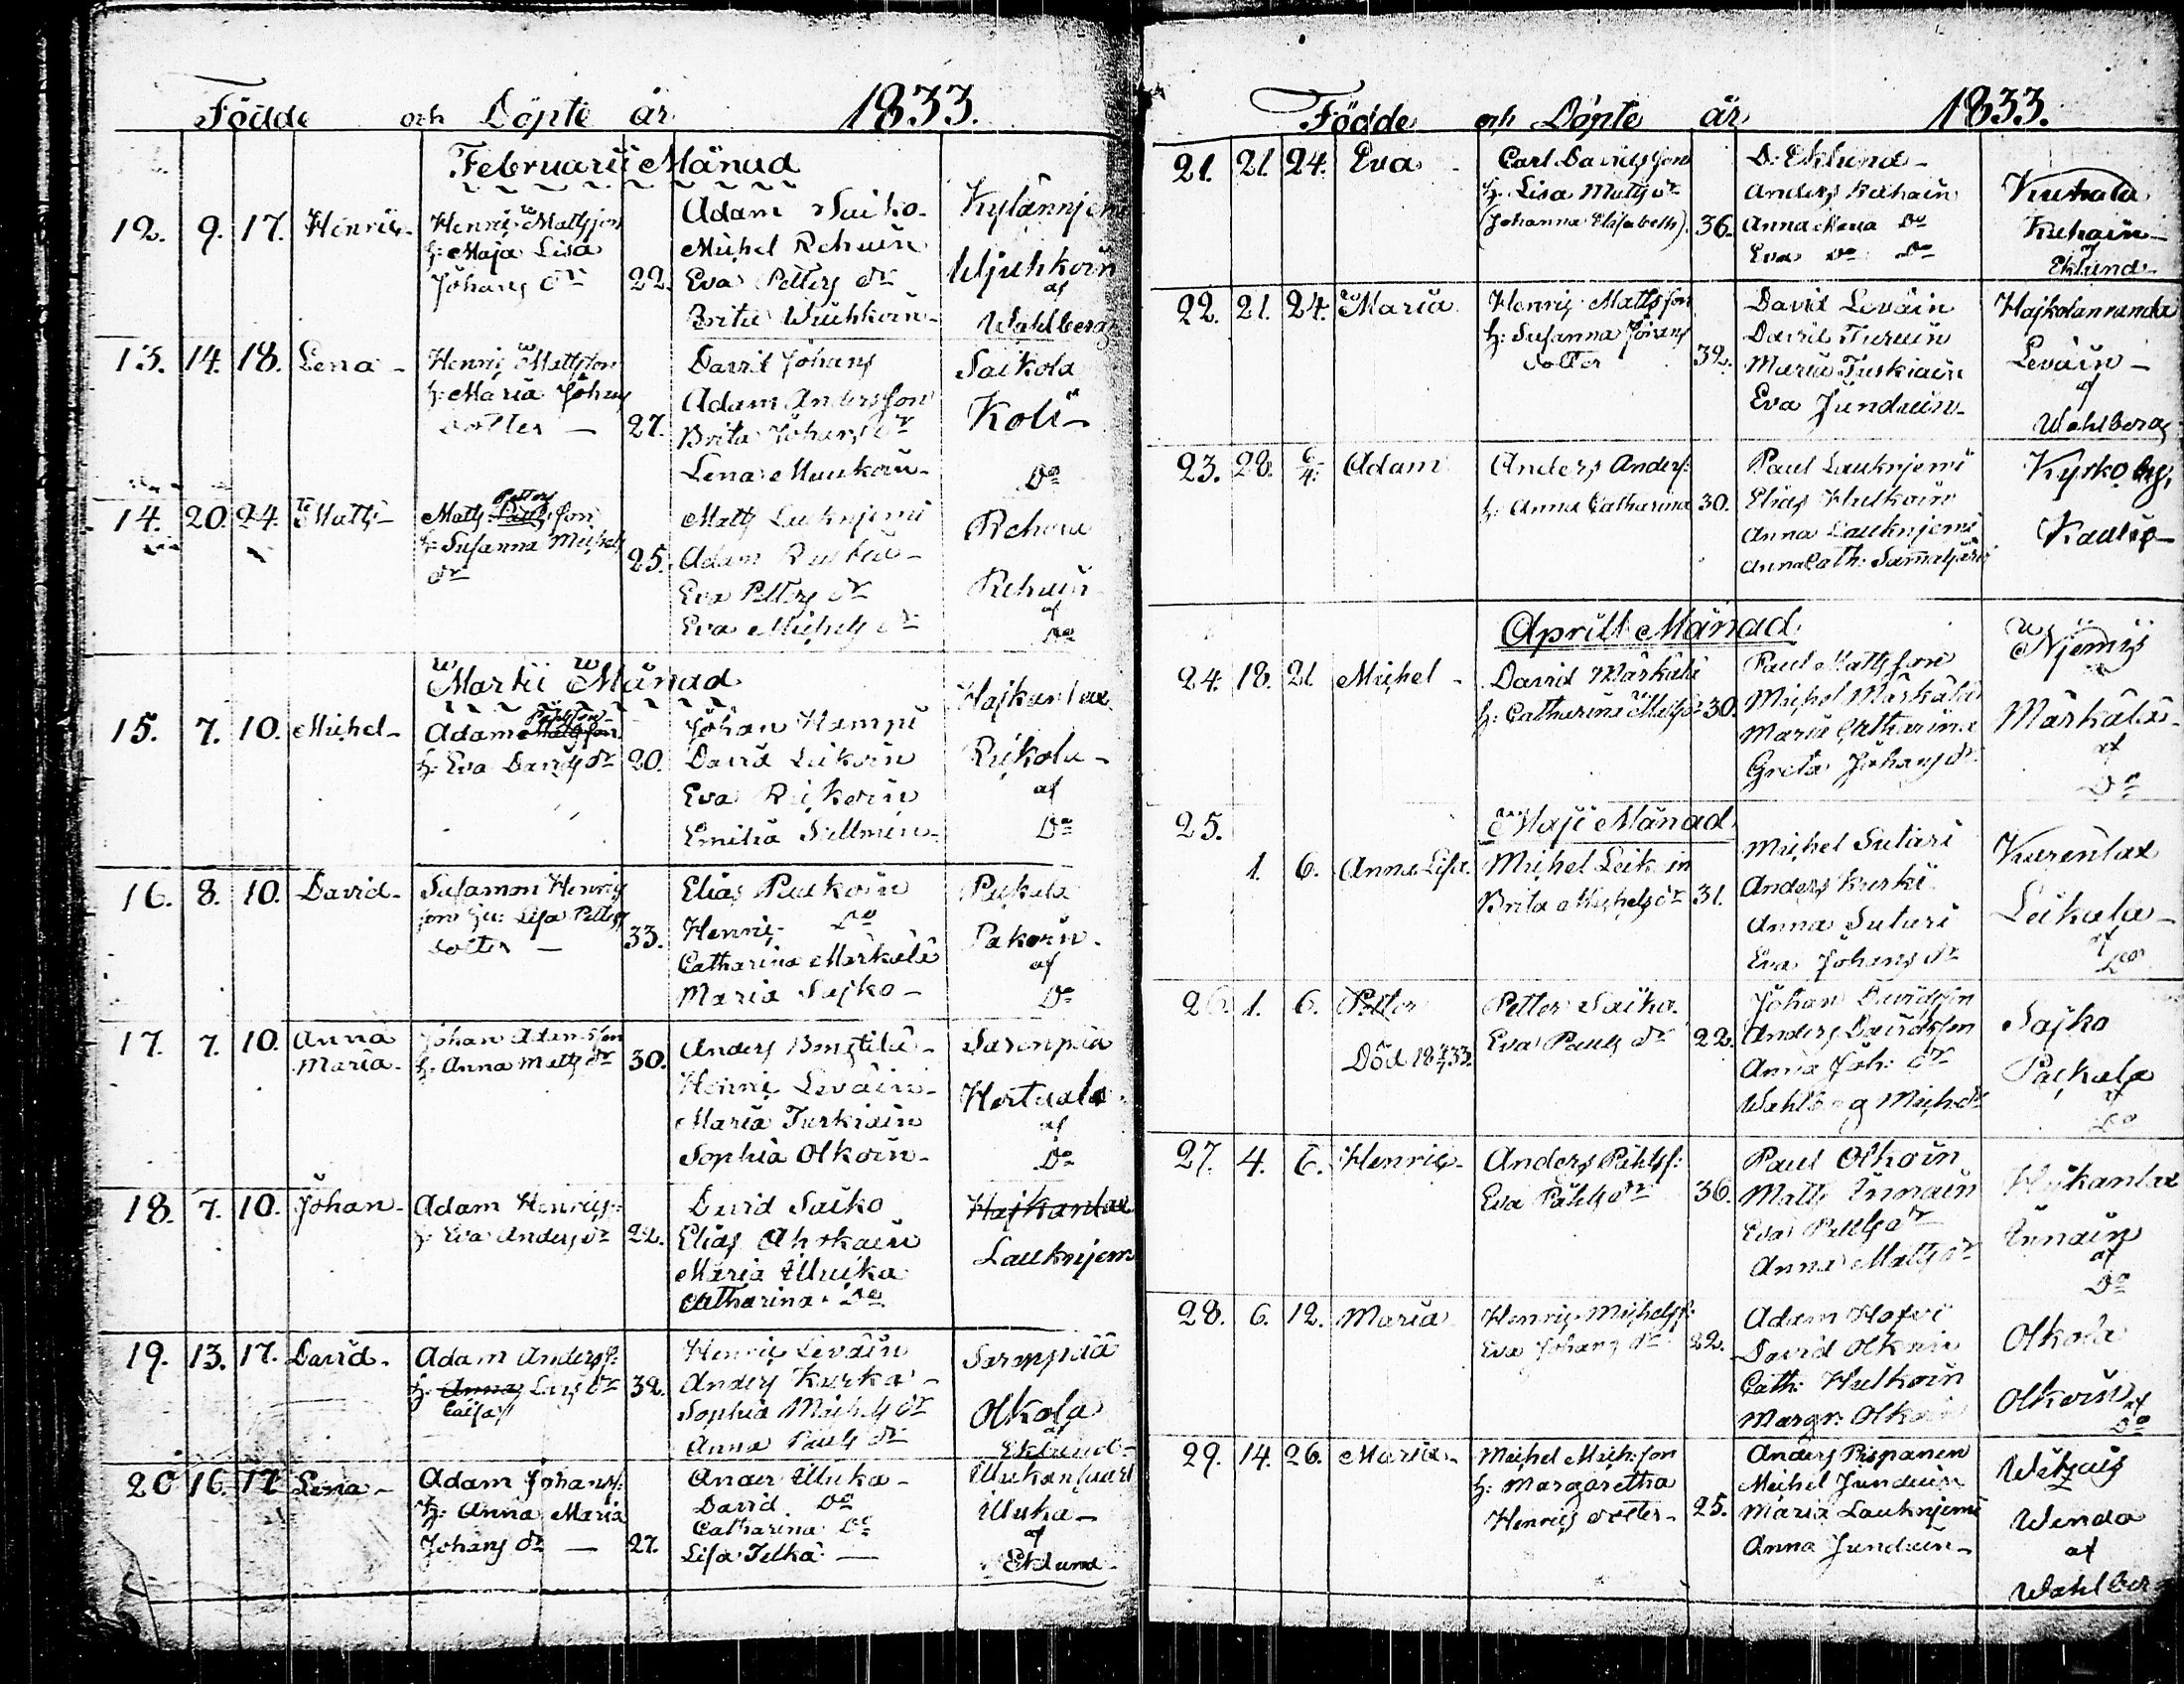 Födde och Döpte år 1833.
Februarii Månad
12. 9. 17. Henric Henric Mattsson
h: Maja Lisa
Johans dr 22.
Adam Saiko
Michel Rehuin
Eva Petters dr
Brita
Kylännjemi
af
Wahlberg
13. 14. 18. Lena Henric Mattsson
h: Maria Johans
dotter 27.
David Johans
Adam Andersson
Brita Johans dr
Lena Muukoin
Saikola
Do
14. 20. 24. Matts Matts Petters Pauls son
h: Susanna Michels
dr 25.
Matts Lauknjemi
Adam
Eva Petters dr
Eva Michels dr
Rehula
Rehuin
af
Do
Martii Månad
15. 7. 10. Michel Adam
h: Eva Davids dr 20.
Johan Hampi
David Leikoin
Eva Rijkoin
Emilia Sellmin
Hajkanlax
Rijkola
af
Do
16. 8. 10. David Salamon Henrics
son hu: Lisa Petters
dotter 33.
Elias Paukoin
Henric Do
Catharina Märkälä
Maria Sajko
Pajkala
Pakoin
af
Do
17. 7. 10. Anna
Maria
Johan Adamsson
h: Anna Matts dr 30.
Anders
Henric Leväin
Maria Turkiain
Sophia Olkoin
Sarenpää
Hortuala
af
Do
18. 7. 10. Johan Adam Henrics:
h: Eva Anders dr 22.
David Saiko
Elias Ahokain
Maria Uluika
Catharina Do
Hajkanlax
Lauknjemi
19. 13. 17. David Adam Anderss:
h: Anna Lars dr 32.
Caisa
Henric Leväin
Anders Kurka
Sophia Michels dr
Anna Pauls dr
Sarenpää
Olkola
af
Eklund
20 16. 17. Lena Adam Johans:
h: Anna Maria
Johans dr 27.
Ander Uluka
David Do
Catharina Do
Lisa Telkä
Uluka
af
Eklund
Födde och Döpte år 1833.
21. 21. 24. Eva Carl Davidsson
h: Lisa Matts dr
(Johanna Elisabeth) 36.
D: Eklund
Anders Kuhain
Anna Lena Do
Eva Do Do
Kuhala
Kuhain
af
Eklund
22. 21. 24. Maria Henric Mattsson
h: Susanna Johans
dotter 32.
David Leväin
David Turuin
Maria Turkiain
Eva Junduin
Hajkolanranda
Leväin
af
Wahlberg
23. 28. 6/4. Adam Anders Anders:
h: Anna Catharina 30.
Paul Lauknjemi
Elias Hulkoin
Anna Lauknjemi
Anna Cath:
Kysko by,
Aprill Månad
24. 18. 21. Michel David Märkälä
h: Catharina Matts dr 30.
Paul Mattsson
Michel Märkälä
Maria Catharina
Greta Johans dr
Njemis
Märkälä
af
Do
25.
Maji Månad
1. 6. Anna Lisa Michel Leikoin
Brita Michels dr 31.
Michel Sutari
Anders Kurki
Anna Sutari
Eva Johans dr
Kurenlax
Leikala
af
Do
26. 1. 6. Petter
Död 18 33.
Petter Saiko
Eva Pauls dr 22.
Johan Davidsson
Anders Davidsson
Anna Joh: dr
Mich: dr
Sajko
Pajkala
af
Do
27. 4. 6. Henric Anders Påhls:
Eva Påhls dr 36.
Paul Olkoin
Matts Innain
Eva Petters dr
Anna Matts dr
Hajkanlax
Innain
af
Do
28. 6. 12. Maria Henric Michelss:
Eva Johans dr 22.
Adam Hofvi
David Olkoin
Cath: Hulkoin
Margr: Olkoin
Olkola
Olkoin
af
Do
29. 14. 26. Maria Michel Mich:son
h: Margaretha
Henrics dotter 25.
Anders Pispanen
Michel Junduin
Maria Lauknjemi
Anna Junduin
Wenda
af
Wahlber